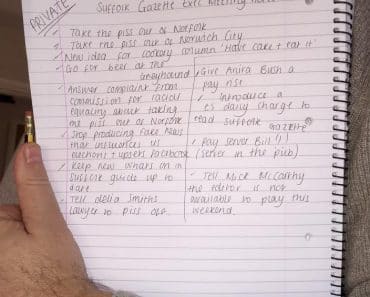 PRIVATE
Suffolk Gazette Exec Meeting
Take the piss out of Norfolk
Take the piss out of Norwich City
New idea for cookery column 'Have cake + eat it'
Go for beer at the
Greyhound
Answer complaint from
commission for racial
equality about taking
the piss out of Norfolk
Stop producing fake news
that influences US
elections + upsets Facebook
Keep new whats on in
Suffolk guide up to
date
Tell Delia Smiths
lawyer to piss off.
Give Anita Bush a
pay rise
Introduce a
£5 daily charge to
read Suffolk
Gazette
Pay server Bill!!
(Server in the pub)
Tell Mick McCarthy
the editor is not
available to play this
weekend.